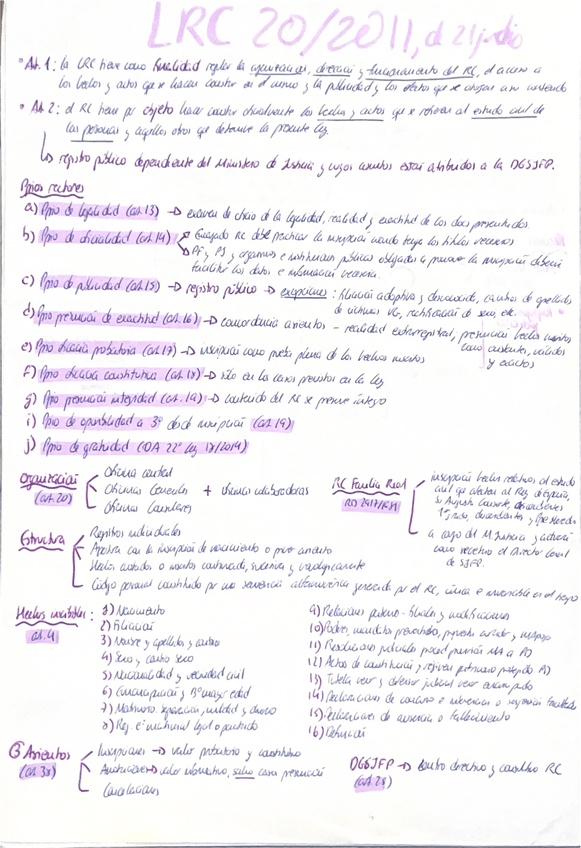 LRC 20/2011, de 21 julio
• Art. 1: la LRC tiene como finalidad regular la organización, dirección y funcionamiento del RC, el acceso a
los hechos y actos que se hacen constar en el mismo y la publicidad y los efectos que se otorgan a su contenido
• Art 2: el RC tiene por objeto hacer constar oficialmente los hechos y actos que se refieren al estado civil de
las personas y aquellos otros que determine la presente ley.
↳ registro público dependiente del Ministerio de Justicia y cuyos asuntos están atribuidos a la DGSJFP.
Ppios rectores
a) Ppio de legalidad (art. 13) → examen de oficio de la legalidad, realidad y exactitud de los docs presentados.
b) Ppio de oficialidad (art. 14) → Encargado RC debe practicar la inscripción cuando tenga los títulos necesarios
PF, y PJ, y organismos e instituciones públicas obligados a promover la inscripción deberán
facilitar los datos e información necesaria.
c) Ppio de publicidad (art. 15) → registro público → excepciones: filiación adoptiva y desconocida, cambios de apellidos
de víctimas VG, rectificación de sexo, etc.
d) Ppio presunción de exactitud (art. 16) → concordancia asientos - realidad extrarregistral, presumirán hechos inscritos
como existentes, válidos
y exactos
e) Ppio eficacia probatoria (art. 17) → inscripción como prueba plena de los hechos inscritos
f) Ppio eficacia constitutiva (art. 18) → sólo en los casos previstos en la ley
g) Ppio presunción integridad (art. 19) → contenido del RC se presume íntegro
i) Ppio de oponibilidad a 3º desde inscripción (art. 19)
j) Ppio de gratuidad (DA 22ª Ley 18/2014)
Organización (art. 20)
Oficina central
Oficinas Generales + oficinas colaboradoras
Oficinas Consulares
RC Familia Real
inscripción hechos relativos al estado
civil que afecten al Rey de España,
su Augusta Consorte, ascendientes
1º grado, descendientes y Ppe Heredero
a cargo del M Justicia y actuará
como secretario el Director General
de SJFP.
Estructura
Registros individuales
Apertura con la inscripción de nacimiento o primer asiento
Código personal constituido por una secuencia alfanumérica generada por el RC, única e invariable en el tiempo
Hechos inscribibles: art. 4
1) Nacimiento
2) Filiación
3) Nombre y apellidos y cambios
4) Sexo y cambio sexo
5) Nacionalidad y vecindad civil
6) Emancipación y Bº mayor edad
7) Matrimonio. separación, nulidad y divorcio
8) Reg. eº matrimonial legal o pactado
9) Relaciones paterno-filiales y modificaciones
12) Actos de constitución y régimen patrimonio protegido PD
15) Declaraciones de ausencia o fallecimiento
16) Defunción
3 Asientos (art. 38)
Inscripciones → valor probatorio y constitutivo
Anotaciones → valor informativo, salvo casos presunción
Cancelaciones
DGSJFP → centro directivo y consultivo RC